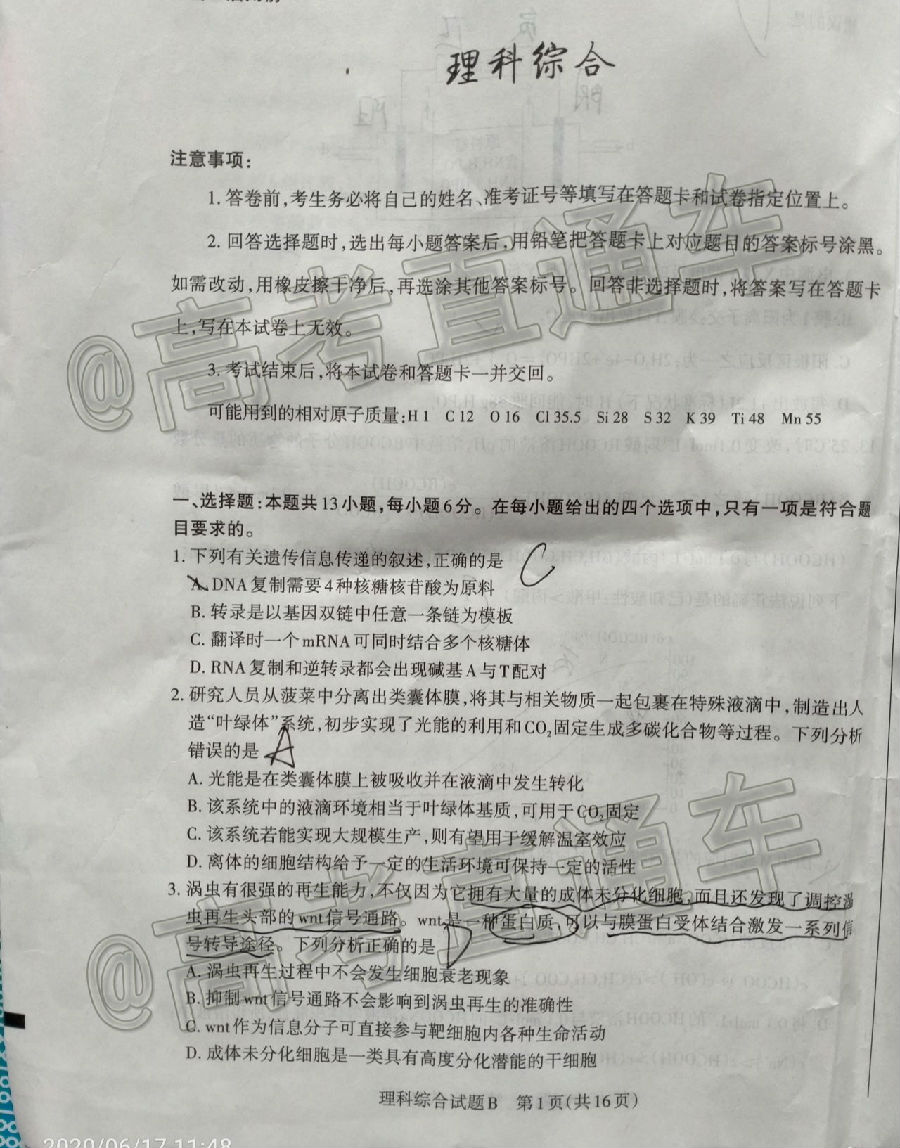 理科综合
注意事项：
1. 答卷前，考生务必将自己的姓名、准考证号等填写在答题卡和试卷指定位置上。
2. 回答选择题时，选出每小题答案后，用铅笔把答题卡上对应题目的答案标号涂黑。
如需改动，用橡皮擦干净后，再选涂其他答案标号。回答非选择题时，将答案写在答题卡
上，写在本试卷上无效。
3. 考试结束后，将本试卷和答题卡一并交回。
可能用到的相对原子质量：H 1 C 12 O 16 Cl 35.5 Si 28 S 32 K 39 Ti 48 Mn 55
一、选择题：本题共13小题，每小题6分。在每小题给出的四个选项中，只有一项是符合题
目要求的。
1. 下列有关遗传信息传递的叙述，正确的是 C
A. DNA复制需要4种核糖核苷酸为原料
B. 转录是以基因双链中任意一条链为模板
C. 翻译时一个mRNA可同时结合多个核糖体
D. RNA复制和逆转录都会出现碱基A与T配对
2. 研究人员从菠菜中分离出类囊体膜，将其与相关物质一起包裹在特殊液滴中，制造出人
造“叶绿体”系统，初步实现了光能的利用和CO₂固定生成多碳化合物等过程。下列分析
错误的是 A
A. 光能是在类囊体膜上被吸收并在液滴中发生转化
B. 该系统中的液滴环境相当于叶绿体基质，可用于CO₂固定
C. 该系统若能实现大规模生产，则有望用于缓解温室效应
D. 离体的细胞结构给予一定的生活环境可保持一定的活性
3. 涡虫有很强的再生能力，不仅因为它拥有大量的成体未分化细胞，而且还发现了调控
虫再生头部的wnt信号通路。wnt是一种蛋白质，可以与膜蛋白受体结合激发一系列信
号转导途径。下列分析正确的是 D
A. 涡虫再生过程中不会发生细胞衰老现象
B. 抑制wnt信号通路不会影响到涡虫再生的准确性
C. wnt作为信息分子可直接参与靶细胞内各种生命活动
D. 成体未分化细胞是一类具有高度分化潜能的干细胞
理科综合试题B 第1页(共16页)
@高考直通车
@高考直通车
2020/06/17 11:48